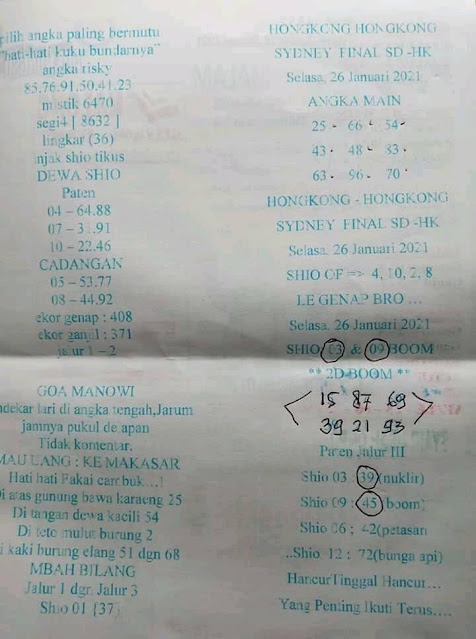 pilih angka paling bermutu
"hati-hati kuku bundarnya"
angka risky
85.76.91.50.41.23
mistik 6470
segi4 [ 8632 ]
lingkar (36)
injak shio tikus
DEWA SHIO
Paten
04 – 64.88
07 – 31.91
10 – 22.46
CADANGAN
05 – 53.77
08 – 44.92
ekor genap : 408
ekor ganjil : 371
jalur 1 – 2
GOA MANOWI
ndekar lari di angka tengah,Jarum
jamnya pukul delapan
Tidak komentar.
MAU LANG : KE MAKASAR
Hati hati Pakai carrbuk...!
Di atas gunung bawa karaeng 25
Di tangan dewa kacili 54
Di teto mulut burung 2
i kaki burung elang 51 dgn 68
MBAH BILANG
Jalur 1 dgr. Jalur 3
Shio 01 {37}
HONGKONG HONGKONG
SYDNEY FINAL SD -HK
Selasa, 26 Januari 2021
ANGKA MAIN
25 - 66 - 54
43 - 48 - 83
63 - 96 - 70
HONGKONG - HONGKONG
SYDNEY FINAL SD -HK
Selasa, 26 Januari 2021
SHIO OF => 4, 10, 2, 8
LE GENAP BRO ...
Selasa, 26 Januari 2021
SHIO 03 & 09 BOOM
** 2D BOOM **
15 87 69
39 21 93
Paten Jalur III
Shio 03 : 39 (nuklir)
Shio 09 : 45 (boom)
Shio 06 ; 42 (petasan
..Shio 12 : 72(bunga api)
HancurTinggal Hancur....
Yang Penting Ikuti Terus....